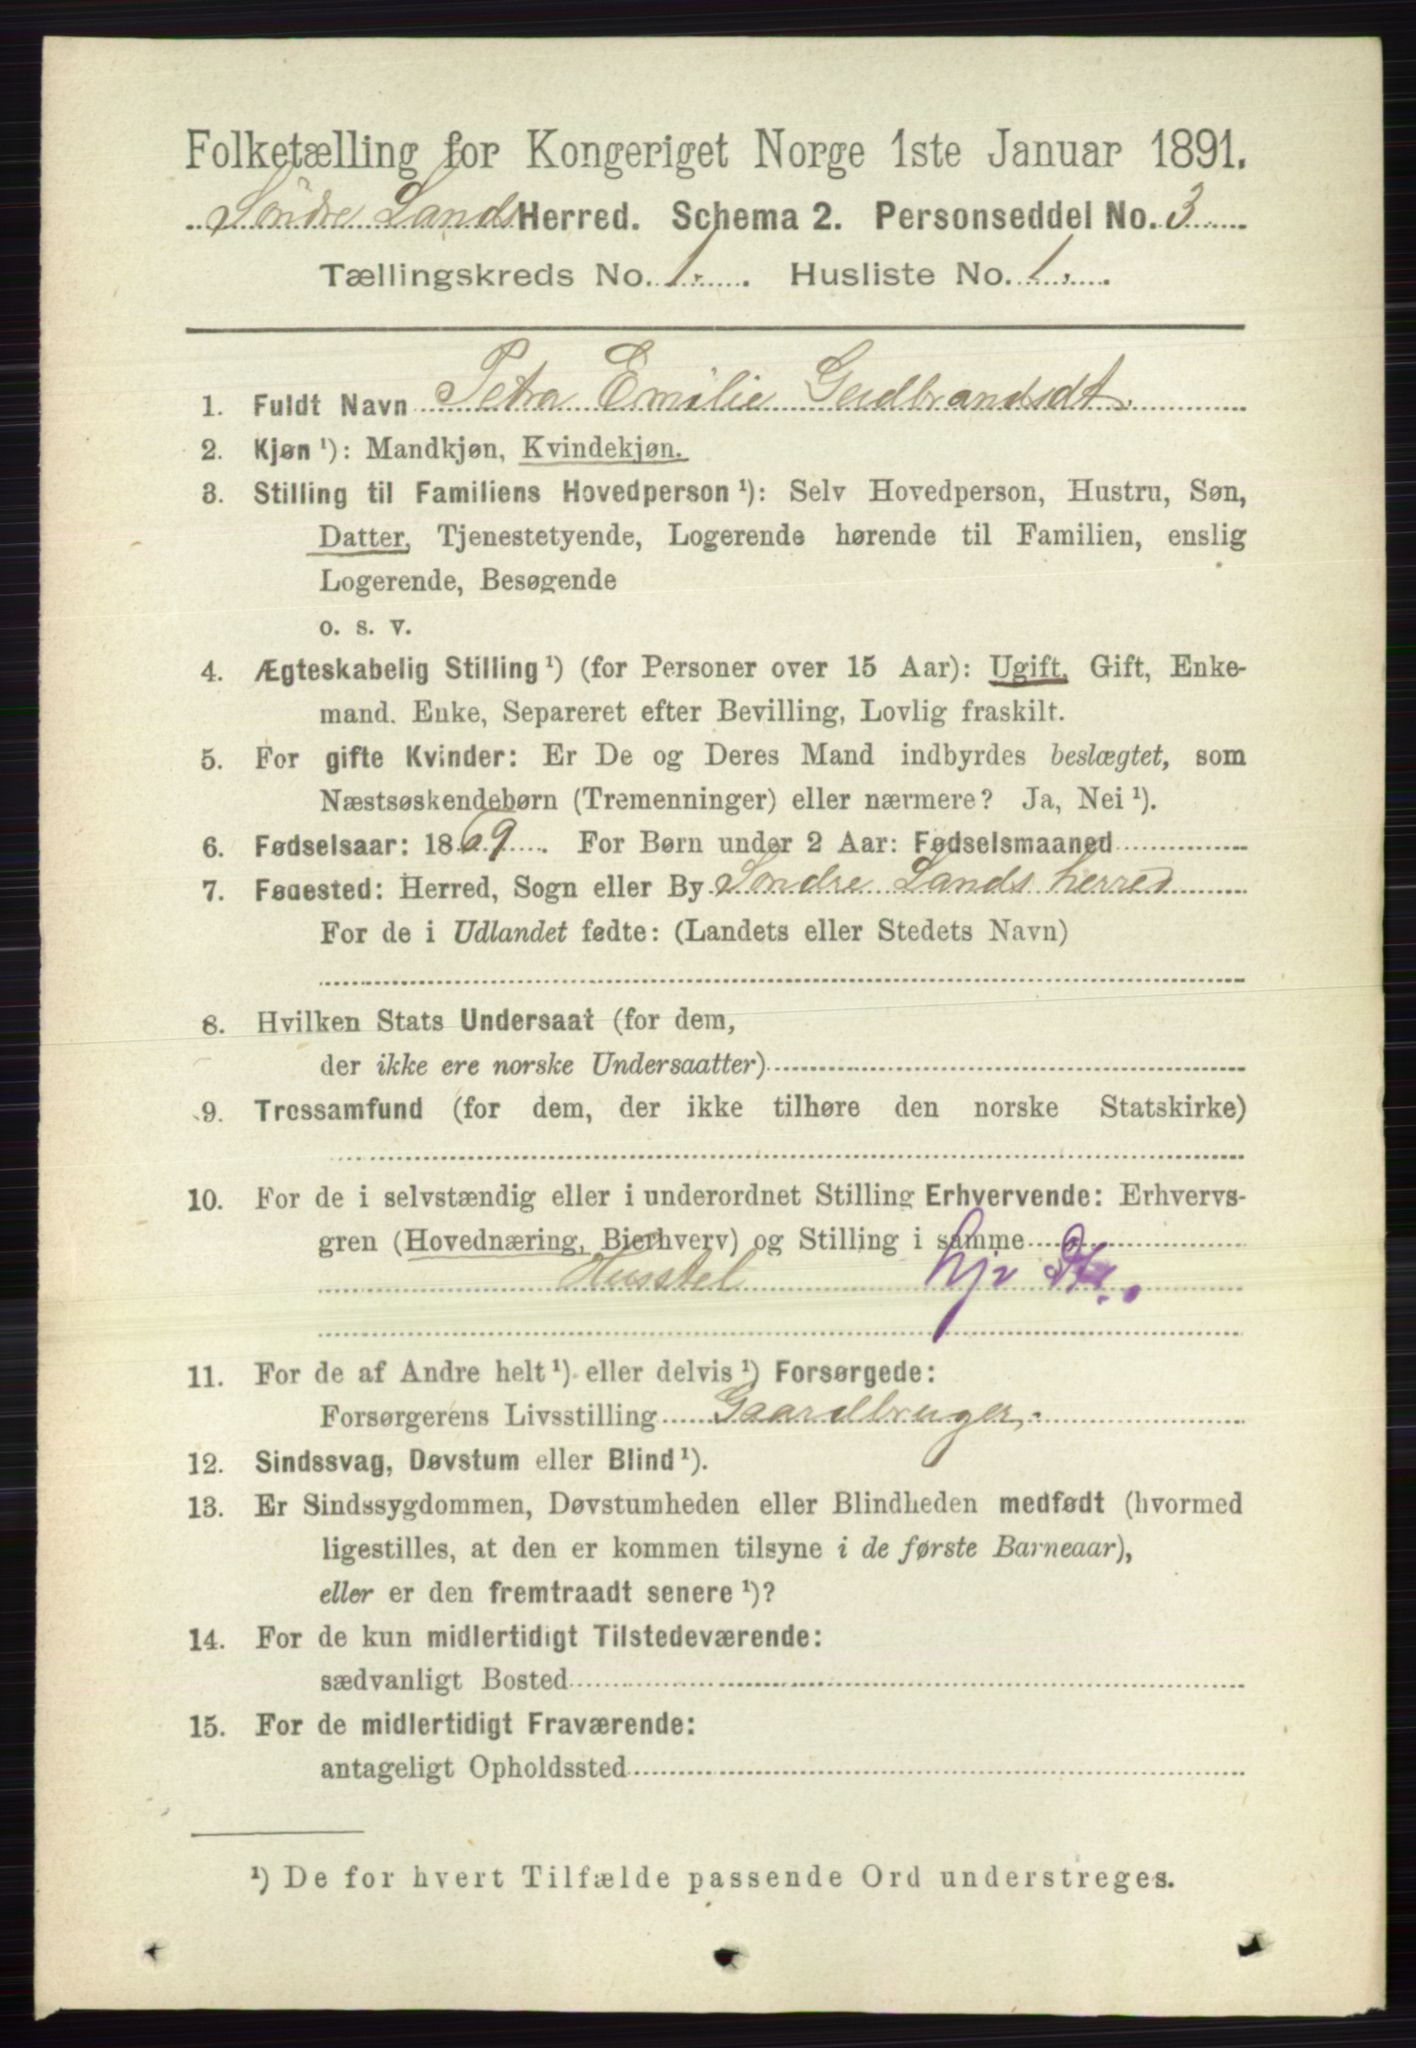 Folketælling for Kongeriget Norge 1ste Januar 1891.
Söndre Lands Herred. Schema 2. Personseddel No. 3
Tællingskreds No. 1. Husliste No. 1.
1. Fuldt Navn Petra Emilie Gudbrandsdt.
2. Kjøn ¹): Mandkjøn, Kvindekjøn.
3. Stilling til Familiens Hovedperson ¹): Selv Hovedperson, Hustru, Søn,
Datter, Tjenestetyende, Logerende hørende til Familien, enslig
Logerende, Besøgende
o. s. v.
4. Ægteskabelig Stilling ¹) (for Personer over 15 Aar): Ugift, Gift, Enke-
mand. Enke, Separeret efter Bevilling, Lovlig fraskilt.
5. For gifte Kvinder: Er De og Deres Mand indbyrdes beslægtet, som
Næstsøskendebørn (Tremenninger) eller nærmere? Ja, Nei ¹).
6. Fødselsaar: 1869. For Børn under 2 Aar: Fødselsmaaned
7. Fødested: Herred, Sogn eller By Söndre Lands herred
For de i Udlandet fødte: (Landets eller Stedets Navn)
8. Hvilken Stats Undersaat (for dem,
der ikke ere norske Undersaatter)
9. Trossamfund (for dem, der ikke tilhøre den norske Statskirke)
10. For de i selvstændig eller i underordnet Stilling Erhvervende: Erhvervs-
gren (Hovednæring, Bierhverv) og Stilling i samme
Husstel
11. For de af Andre helt ¹) eller delvis ¹) Forsørgede:
Forsørgerens Livsstilling Gaardbruger.
12. Sindssvag, Døvstum eller Blind ¹).
13. Er Sindssygdommen, Døvstumheden eller Blindheden medfødt (hvormed
ligestilles, at den er kommen tilsyne i de første Barneaar),
eller er den fremtraadt senere ¹)?
14. For de kun midlertidigt Tilstedeværende:
sædvanligt Bosted
15. For de midlertidigt Fraværende:
antageligt Opholdssted
¹) De for hvert Tilfælde passende Ord understreges.